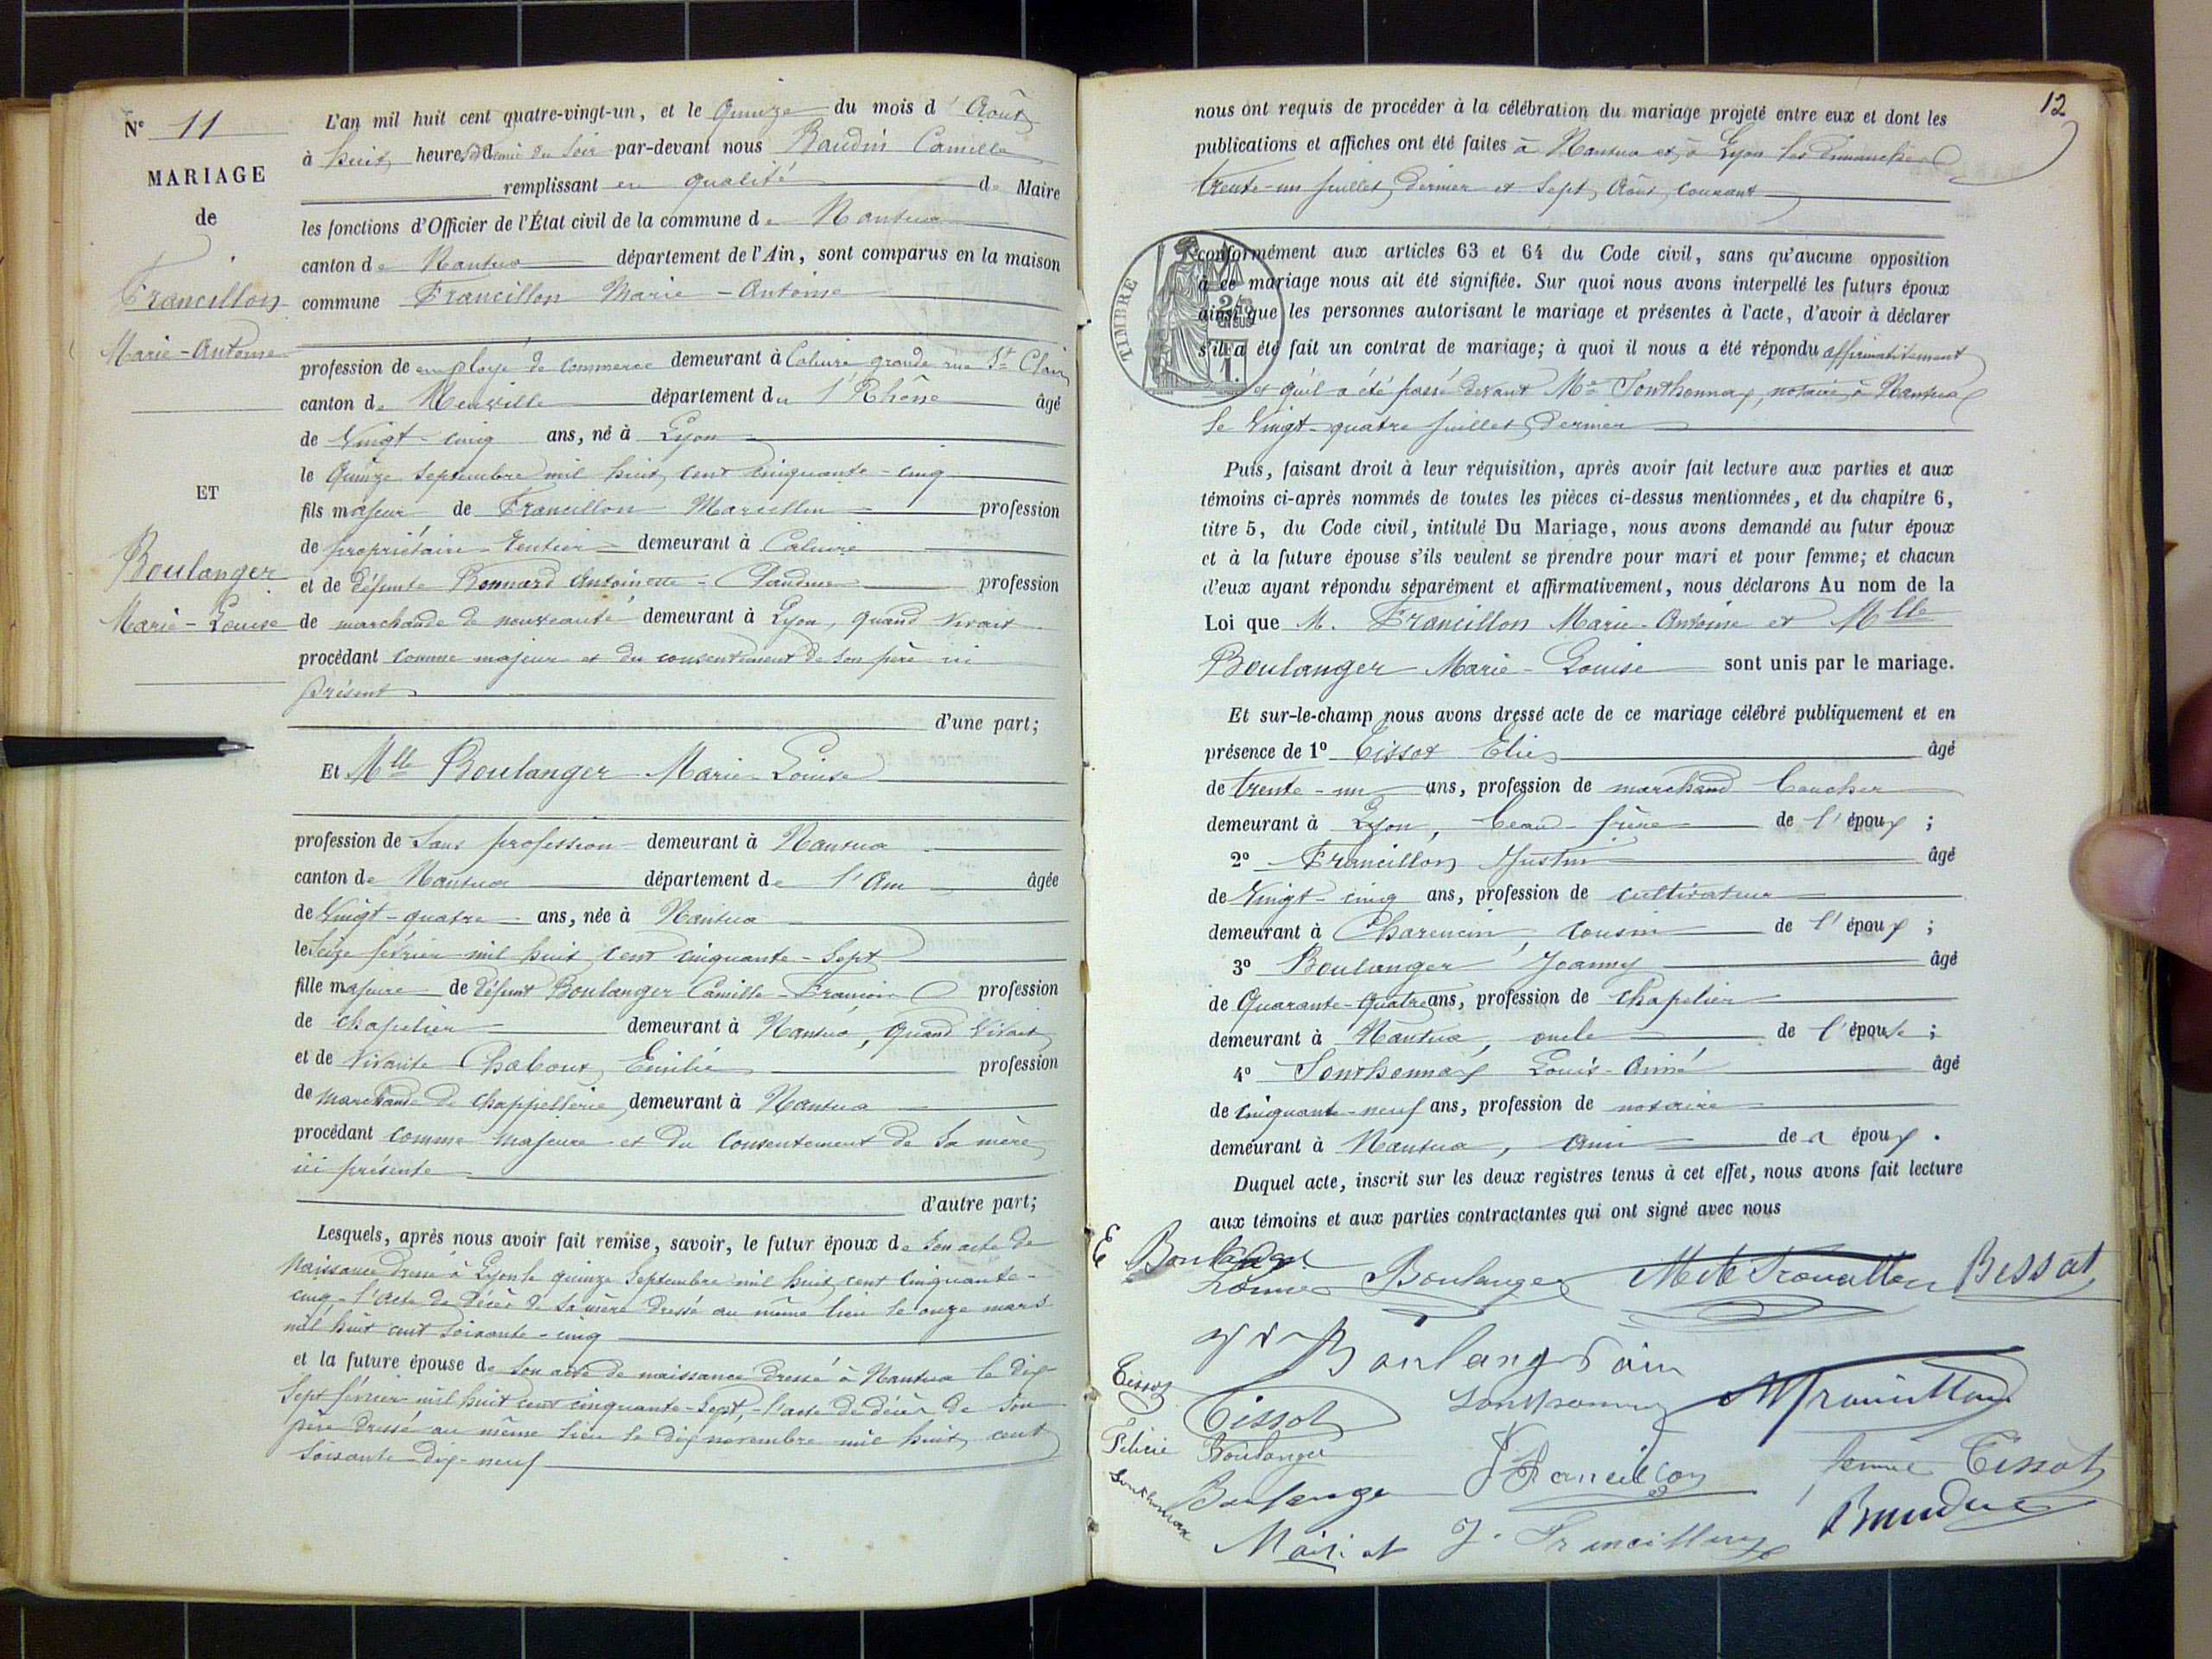 N° 11
MARIAGE
de
Francillon
Marie-Antoine
ET
Boulanger
Marie-Louise
L'an mil huit cent quatre-vingt-un, et le Quinze du mois d'Août
à huit heures et demie du soir par-devant nous Baudin Camille
remplissant en qualité de Maire
les fonctions d'Officier de l'État civil de la commune de Nantua
canton de Nantua département de l'Ain, sont comparus en la maison
commune Francillon Marie-Antoine
profession de employé de commerce demeurant à Caluire grande rue St Clair
canton de Neuville département du Rhône âgé
de Vingt-cinq ans, né à Lyon
le Quinze Septembre mil huit cent cinquante-cinq
fils majeur de Francillon Marcellin profession
de propriétaire-rentier demeurant à Caluire
et de défunte Bonnard Antoinette-Claudine profession
de marchande de nouveauté demeurant à Lyon, quand vivait
procédant comme majeur et du consentement de son père ici
présent
d'une part;
Et Mlle Boulanger Marie-Louise
profession de Sans profession demeurant à Nantua
canton de Nantua département de l'Ain âgée
de Vingt-quatre ans, née à Nantua
le Seize février mil huit cent cinquante-sept
fille majeure de défunt Boulanger Camille-François profession
de chapelier demeurant à Nantua, quand vivait
et de vivante Chaboux Emilie profession
de marchande de chappellerie demeurant à Nantua
procédant comme majeure et du consentement de sa mère
ici présente
d'autre part;
Lesquels, après nous avoir fait remise, savoir, le futur époux de son acte de
Naissance dressé à Lyon le quinze Septembre mil huit cent cinquante-
cinq - l'acte de décès de sa mère dressé au même lieu le onze mars
mil huit cent soixante-cinq
et la future épouse de son acte de naissance dressé à Nantua le dix
Sept février mil huit cent cinquante-sept, - l'acte de décès de son
père dressé au même lieu le dix novembre mil huit cent
soixante dix-neuf
12
nous ont requis de procéder à la célébration du mariage projeté entre eux et dont les
publications et affiches ont été faites à Nantua et à Lyon les dimanches
trente-un juillet dernier et sept Août courant
TIMBRE
conformément aux articles 63 et 64 du Code civil, sans qu'aucune opposition
à ce mariage nous ait été signifiée. Sur quoi nous avons interpellé les futurs époux
ainsi que les personnes autorisant le mariage et présentes à l'acte, d'avoir à déclarer
s'il a été fait un contrat de mariage; à quoi il nous a été répondu affirmativement
et qu'il a été passé devant Me Sonthonnax, notaire à Nantua
le Vingt-quatre juillet dernier
Puis, faisant droit à leur réquisition, après avoir fait lecture aux parties et aux
témoins ci-après nommés de toutes les pièces ci-dessus mentionnées, et du chapitre 6,
titre 5, du Code civil, intitulé Du Mariage, nous avons demandé au futur époux
et à la future épouse s'ils veulent se prendre pour mari et pour femme; et chacun
d'eux ayant répondu séparément et affirmativement, nous déclarons Au nom de la
Loi que M. Francillon Marie-Antoine et Mlle
Boulanger Marie-Louise sont unis par le mariage.
Et sur-le-champ nous avons dressé acte de ce mariage célébré publiquement et en
présence de 1° Tissot Elie âgé
de trente-un ans, profession de marchand boucher
demeurant à Lyon, beau-frère de l'époux;
2° Francillon Justin âgé
de Vingt-cinq ans, profession de cultivateur
demeurant à Charencin, cousin de l'époux;
3° Boulanger Joanny âgé
de Quarante-Quatre ans, profession de chapelier
demeurant à Nantua, oncle de l'épouse;
4° Sonthonnax Louis-Aimé âgé
de cinquante-neuf ans, profession de notaire
demeurant à Nantua, ami de époux.
Duquel acte, inscrit sur les deux registres tenus à cet effet, nous avons fait lecture
aux témoins et aux parties contractantes qui ont signé avec nous
E Boulanger
Louise Boulanger Bessat
Boulanger
Tissot
Tissot Sonthonnax
Félicie Boulanger
Francillon femme Tissot
Boulanger
Sonthonnax
J. Francillon Baudin